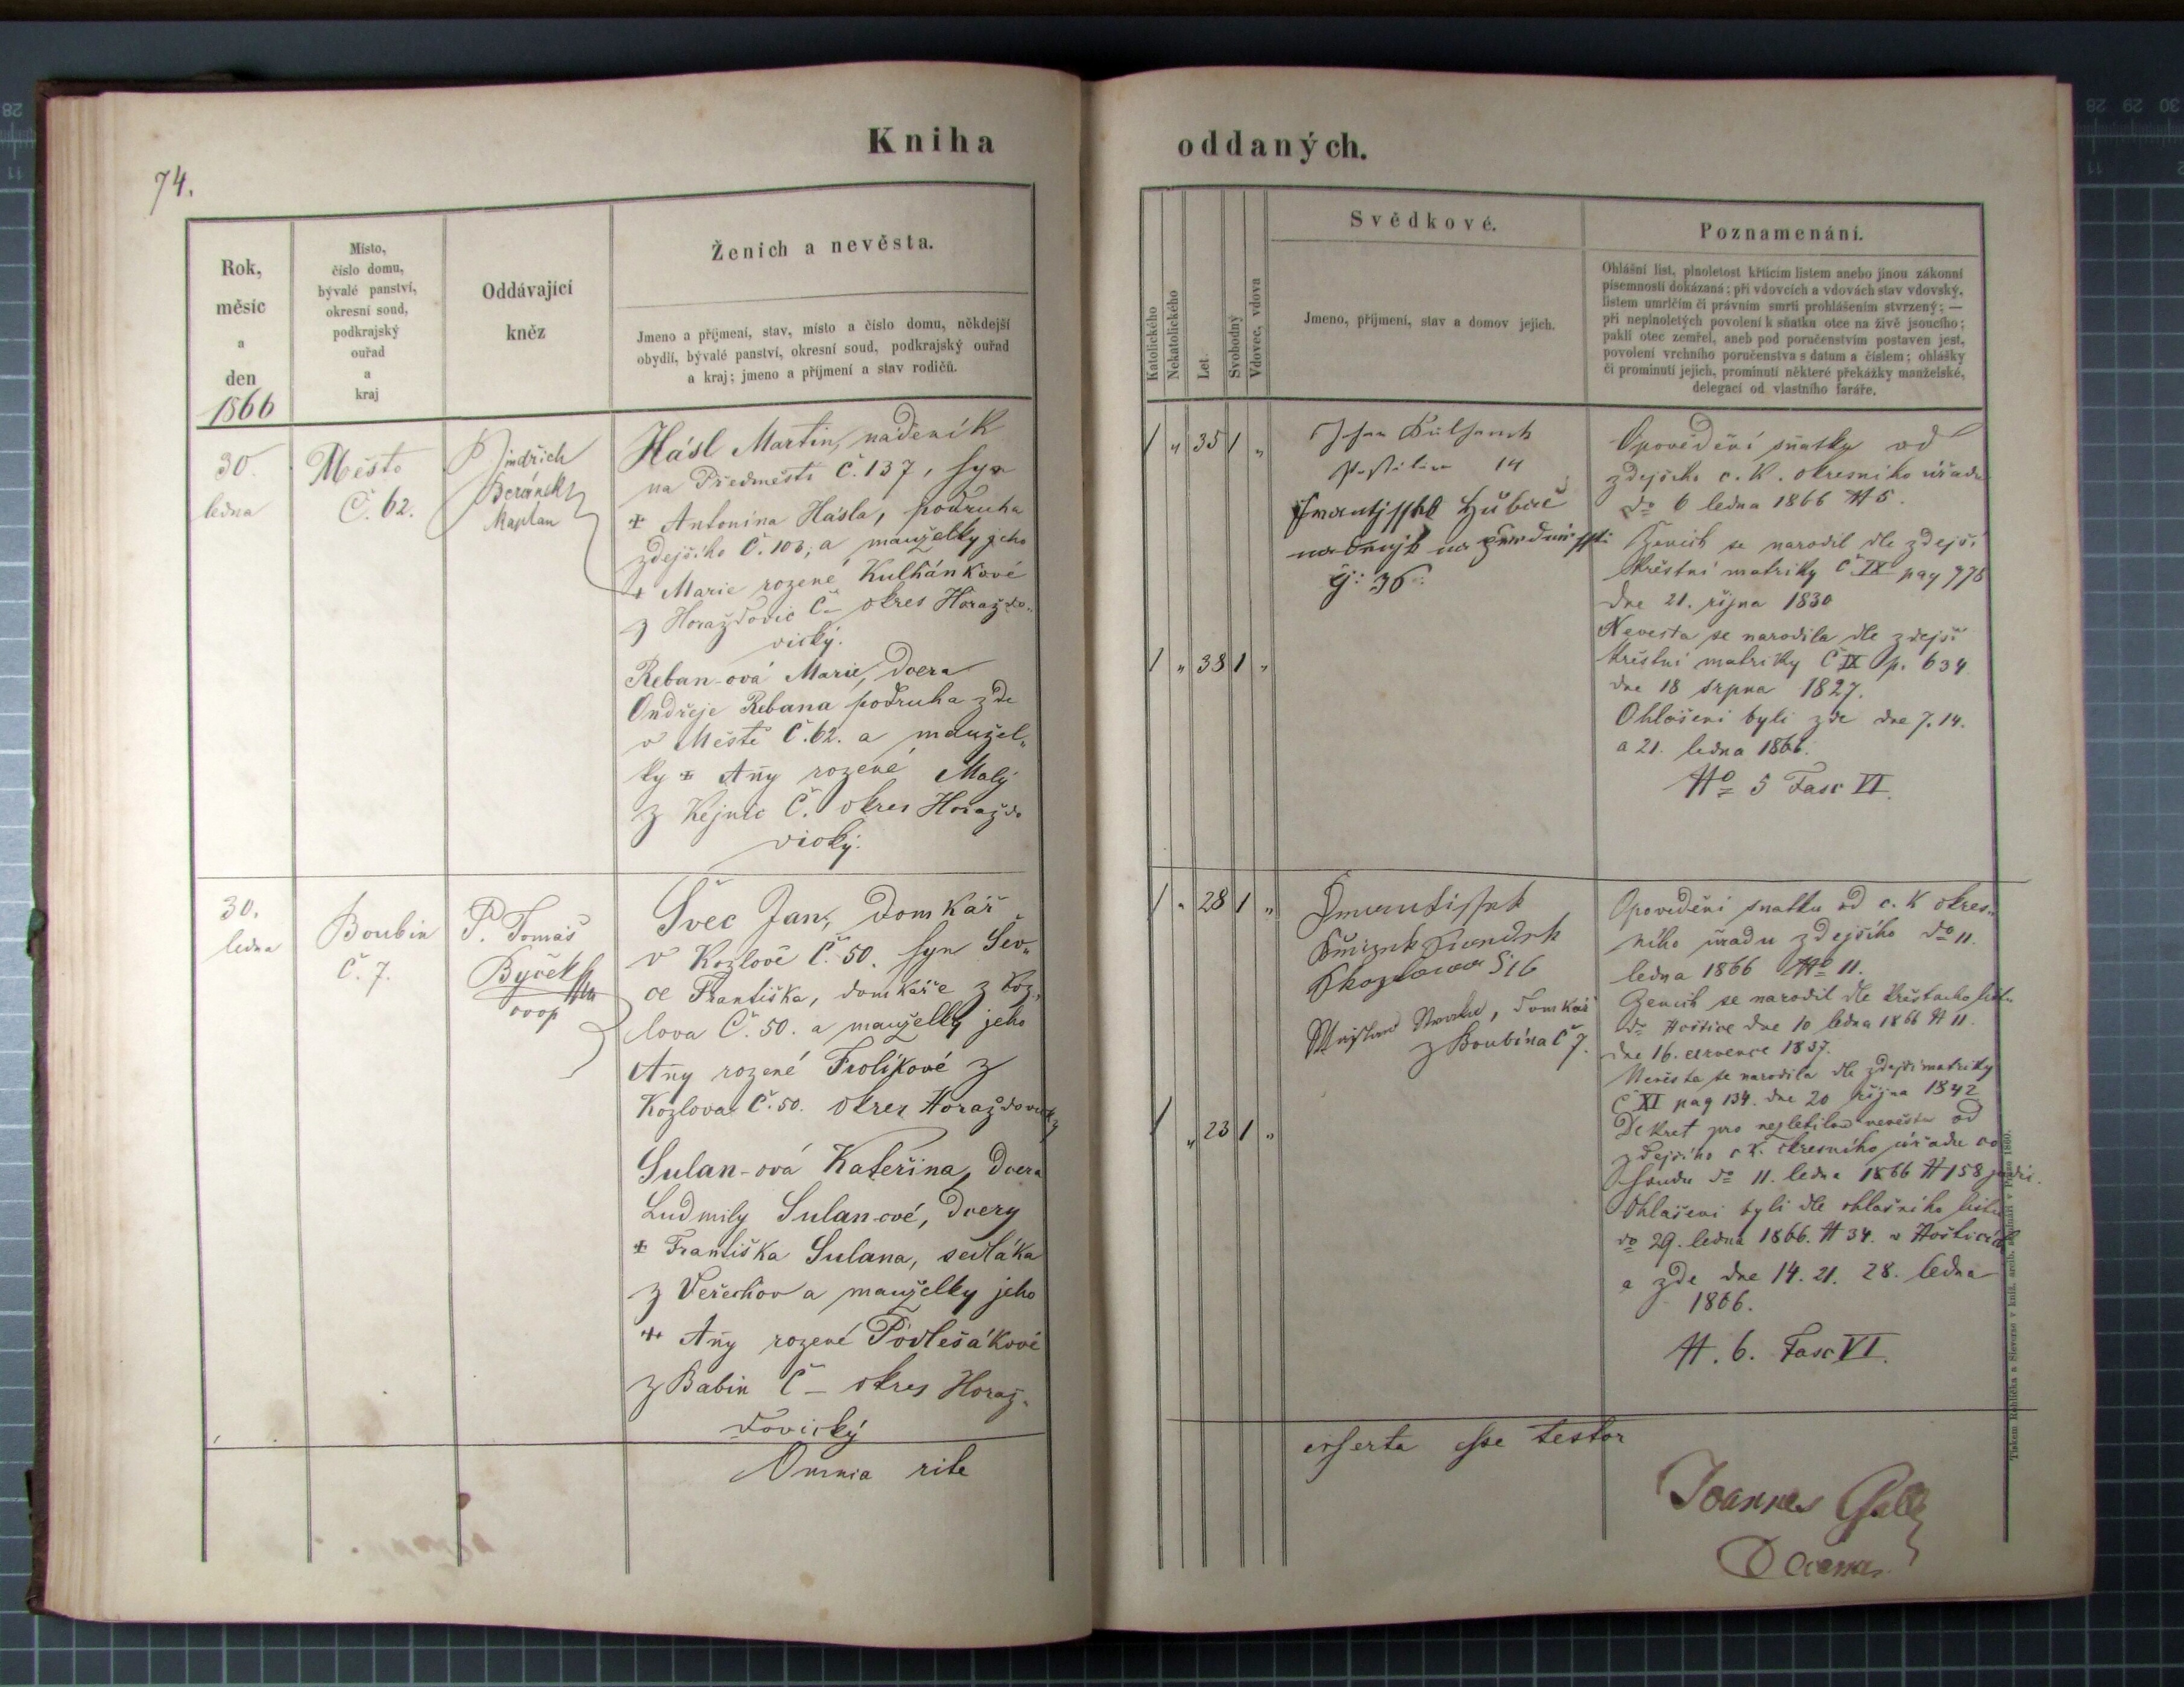 74.
Kniha
Rok,
měsíc
a
den
1866
Místo,
číslo domu,
bývalé panství,
okresní soud,
podkrajský
ouřad
a
kraj
Oddávající
kněz
Ženich a nevěsta.
Jmeno a příjmení, stav, místo a číslo domu, někdejší
obydlí, bývalé panství, okresní soud, podkrajský ouřad
a kraj; jmeno a příjmení a stav rodičů.
30.
ledna
Město
Č. 62.
P. Jindřich
Beránek
Kaplan
Hásl Martin, nádeník
na Předměstí Č. 137, syn
+ Antonína Hásla, podruha
zdejšího Č. 103, a manželky jeho
+ Marie rozené Kulhánkové
z Horažďovic Č – okres Horaždo„
vický.
Reban-ová Marie, dcera
Ondřeje Rebana podruha zde
v Městě Č. 62. a manžel„
ky + Añy rozené Malý
z Kejnic Č. okres Horaždo
vický.
30.
ledna
Boubin
Č. 7.
P. Tomáš
Byček
Švec Jan, domkář
v Kozlově Č. 50. syn Šev„
ce Františka, domkáře z Koz„
lova Č. 50. a manželky jeho
Añy rozené Frolíkové z
Kozlova Č. 50. okres Horaždovický
Sulan-ová Kateřina, dcera
Ludmily Sulanové, dcery
+ Františka Sulana, sedláka
z Veřechov a manželky jeho
+ Añy rozené Podlešákové
z Babin Č – okres Horaž„
dovický
Omnia rite
oddaných.
Katolického
Nekatolického
Let
Svobodný
Vdovec, vdova
Svědkové.
Jmeno, příjmení, stav a domov jejich.
Poznamenání.
Ohlášní list, plnoletost křticím listem anebo jinou zákonní
písemností dokázaná; při vdovcích a vdovách stav vdovský,
listem umrlčím či právním smrti prohlášením stvrzený; —
při neplnoletých povolení k sňatku otce na živě jsoucího;
paklí otec zemřel, aneb pod poručenstvím postaven jest,
povolení vrchního poručenstva s datum a číslem; ohlášky
či prominutí jejich, prominutí některé překážky manželské,
delegací od vlastního faráře.
/ „ 35 / „
14
Frantissek Hubač
g: 36
/ „ 38 / „
Opovědění sňatky od
zdejšího c. k. okresního úřadu
do 6 ledna 1866 # 5.
Ženich se narodil dle zdejší
křestní matriky Č IX pag 778
dne 21. října 1830
Nevěsta se narodila dle zdejší
křestní matriky Č IX p. 634
dne 18 srpna 1827.
Ohlášeni byli zde dne 7. 14.
a 21. ledna 1866.
No 5 Fasc VI.
/ „ 28 / „
Frantissek
domkář
z Boubína Č 7.
/ „ 23 / „
Opovědění snatku od c. k okres„
ního úřadu zdejšího do 11.
ledna 1866 No 11.
Ženich se narodil dle křestního listu
do Hoštice dne 10 ledna 1866 # 11.
dne 16. července 1837.
Nevěsta se narodila dle zdejší matriky
Č XI pag 134. dne 20 října 1842
Dekret pro nezletilou nevěstu od
zdejšího c k. okresního úřadu co
soudu do 11. ledna 1866 # 158 judic.
Ohlášeni byli dle ohlašního listu
do 29. ledna 1866. # 34. v Hošticích
a zde dne 14. 21. 28. ledna
1866.
#. 6. Fasc VI.
inserta esse testor
Joannes
Decanus